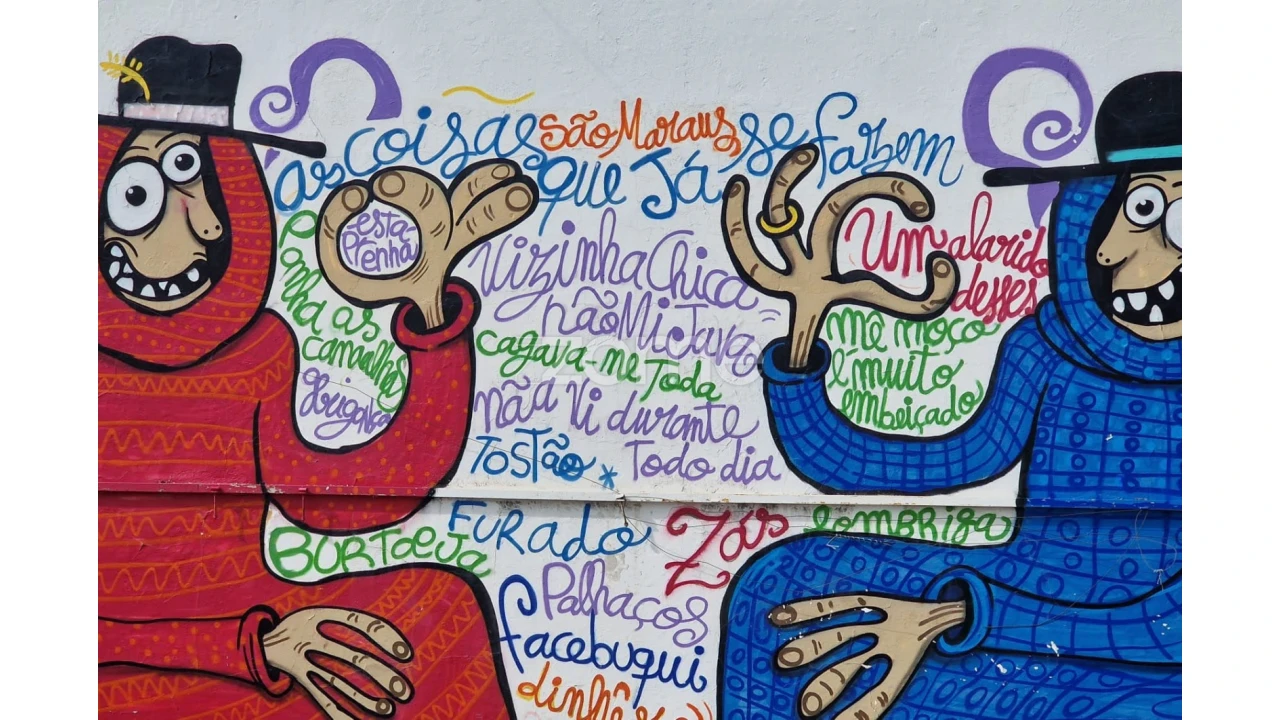 as coisas são Maraus se fazem
que Já
esta
Prenha
Vizinha Chica
não Mi Java
cagava-me Toda
não Vi durante
TOSTão * Todo dia
Ponha as
cangalhas
Um alarido
desses
me moço
é muito
embeiçado
FURADO
Zás
lombriga
BURTOEJA
Palhaços
facebuqui